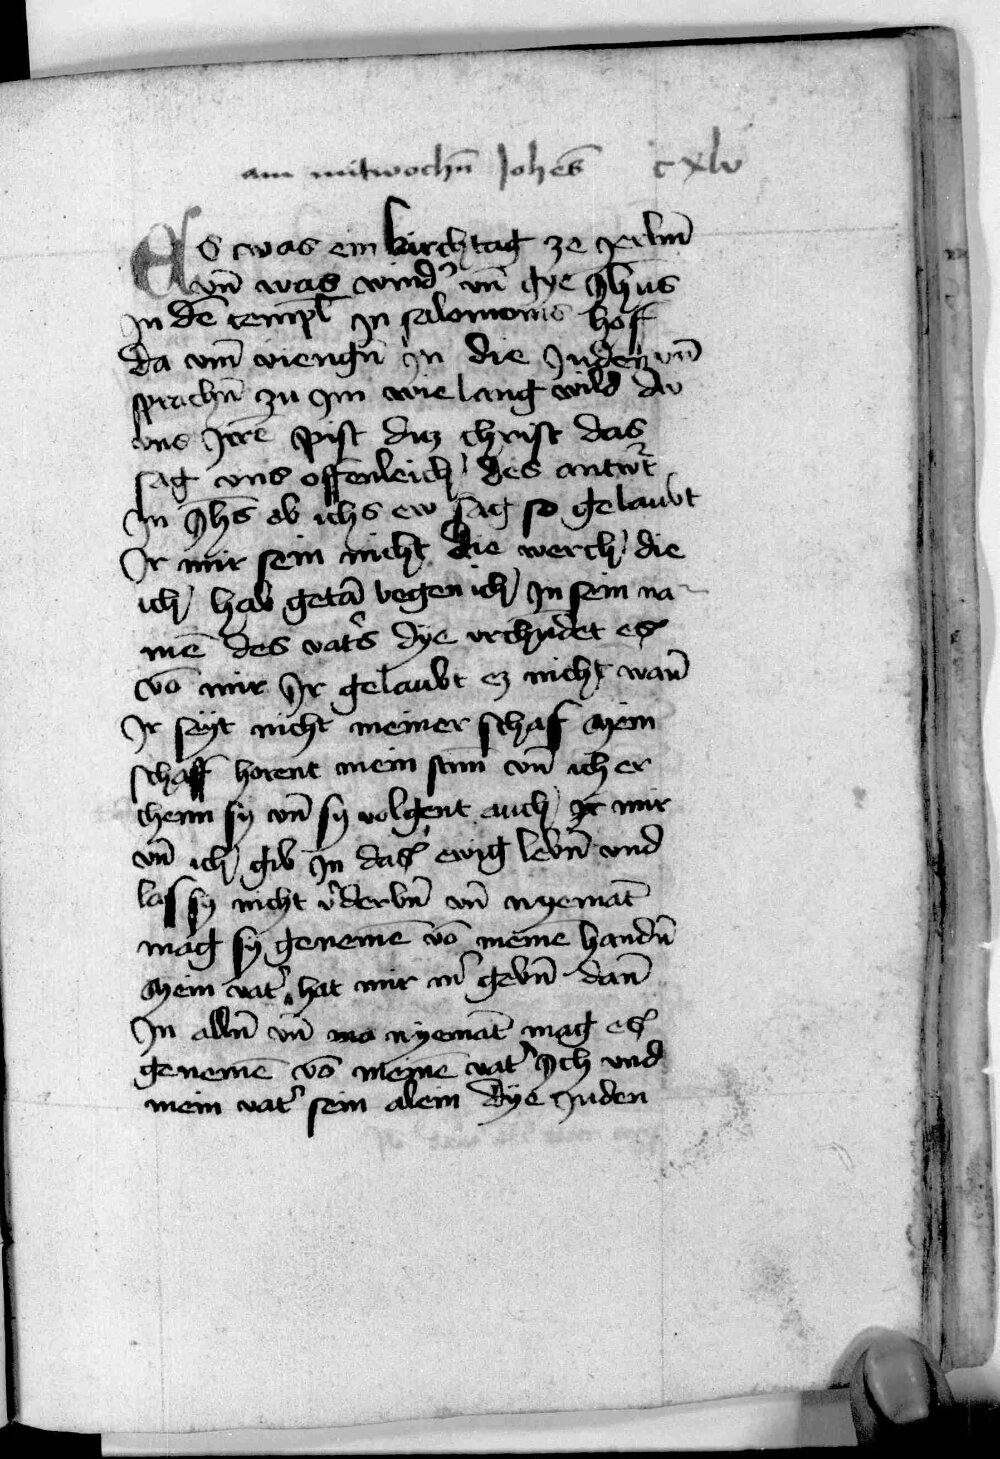 am mitwochn̄ Joħes̄ cxlv
Es was ein kirchtag ze Jerl̄m
vn̄ was wind᾽ vn̄ gye Jħus
Jn dē templ̄ Jn salomonis hoff
da vm̄ viengn̄ in die Juden vn̄
sprachn̄ zu Jm wie lang wild du
vns Jrrē pist duz christ das
sag vns offenleich des antwrt
Jn Jħs ob ichs ew sag so gelaubt
Jr mir sein nicht die werch die
ich hab getā vegen ich Jn sein na-
mē des vat᾽s dye vrchūdet es
vō mir Jr gelaubt ez nicht wan̄
Jr seyt nicht meiner schaf Mein
schaff horent mein stim̄ vn̄ ich er
chenn sy vn̄ sy volgent auch mir
vn̄ ich gib Jn das ewig lebn̄ vnd
las sy nicht v᾽derbn̄ vn̄ nyemāt
mag sy genemē vō meinē handn̄
Mein vat᾽ hat mir m᾽ gebn̄ dan̄
Jn alln̄ vn̄ nyemāt mag es
genemē vō meinē vat᾽ Jch vnd
mein vat᾽ sein alein Dye Juden